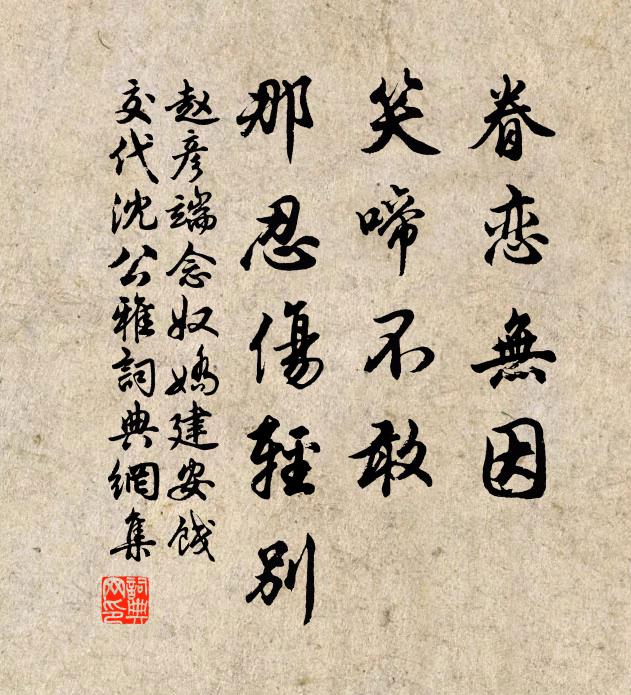 眷恋無因
笑啼不敢
那忍傷輕別
赵彦端念奴嬌建安餞
交代沈公雅詞典網集
詞典
网印